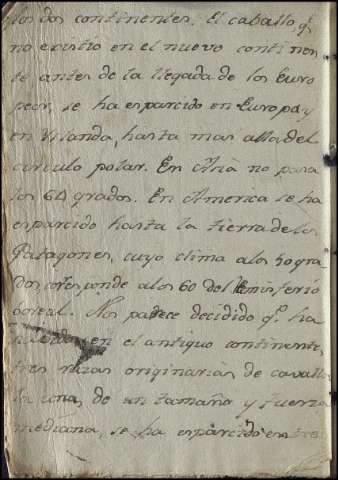 los dos continentes. El caballo q.e
no existio en el nuevo continen
te antes de la llegada de los Euro
peos, se ha esparcido en Europa y
en Yrlanda, hasta mas alla del
circulo polar. En Asia no pasa
los 64 grados. En America se ha
esparcido hasta la tierra de los
Patagones, cuyo clima a los 50 gra
dos corresponde a los 60 del Emisferio
boreal. Nos parece decidido q.e ha
en el antiguo continente,
tres razas originarias de cavallos
la una, de un tamaño y fuerza
mediana, se ha esparcido entre